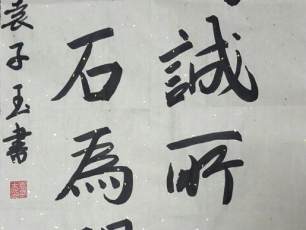 誠所
石為
袁子玉書